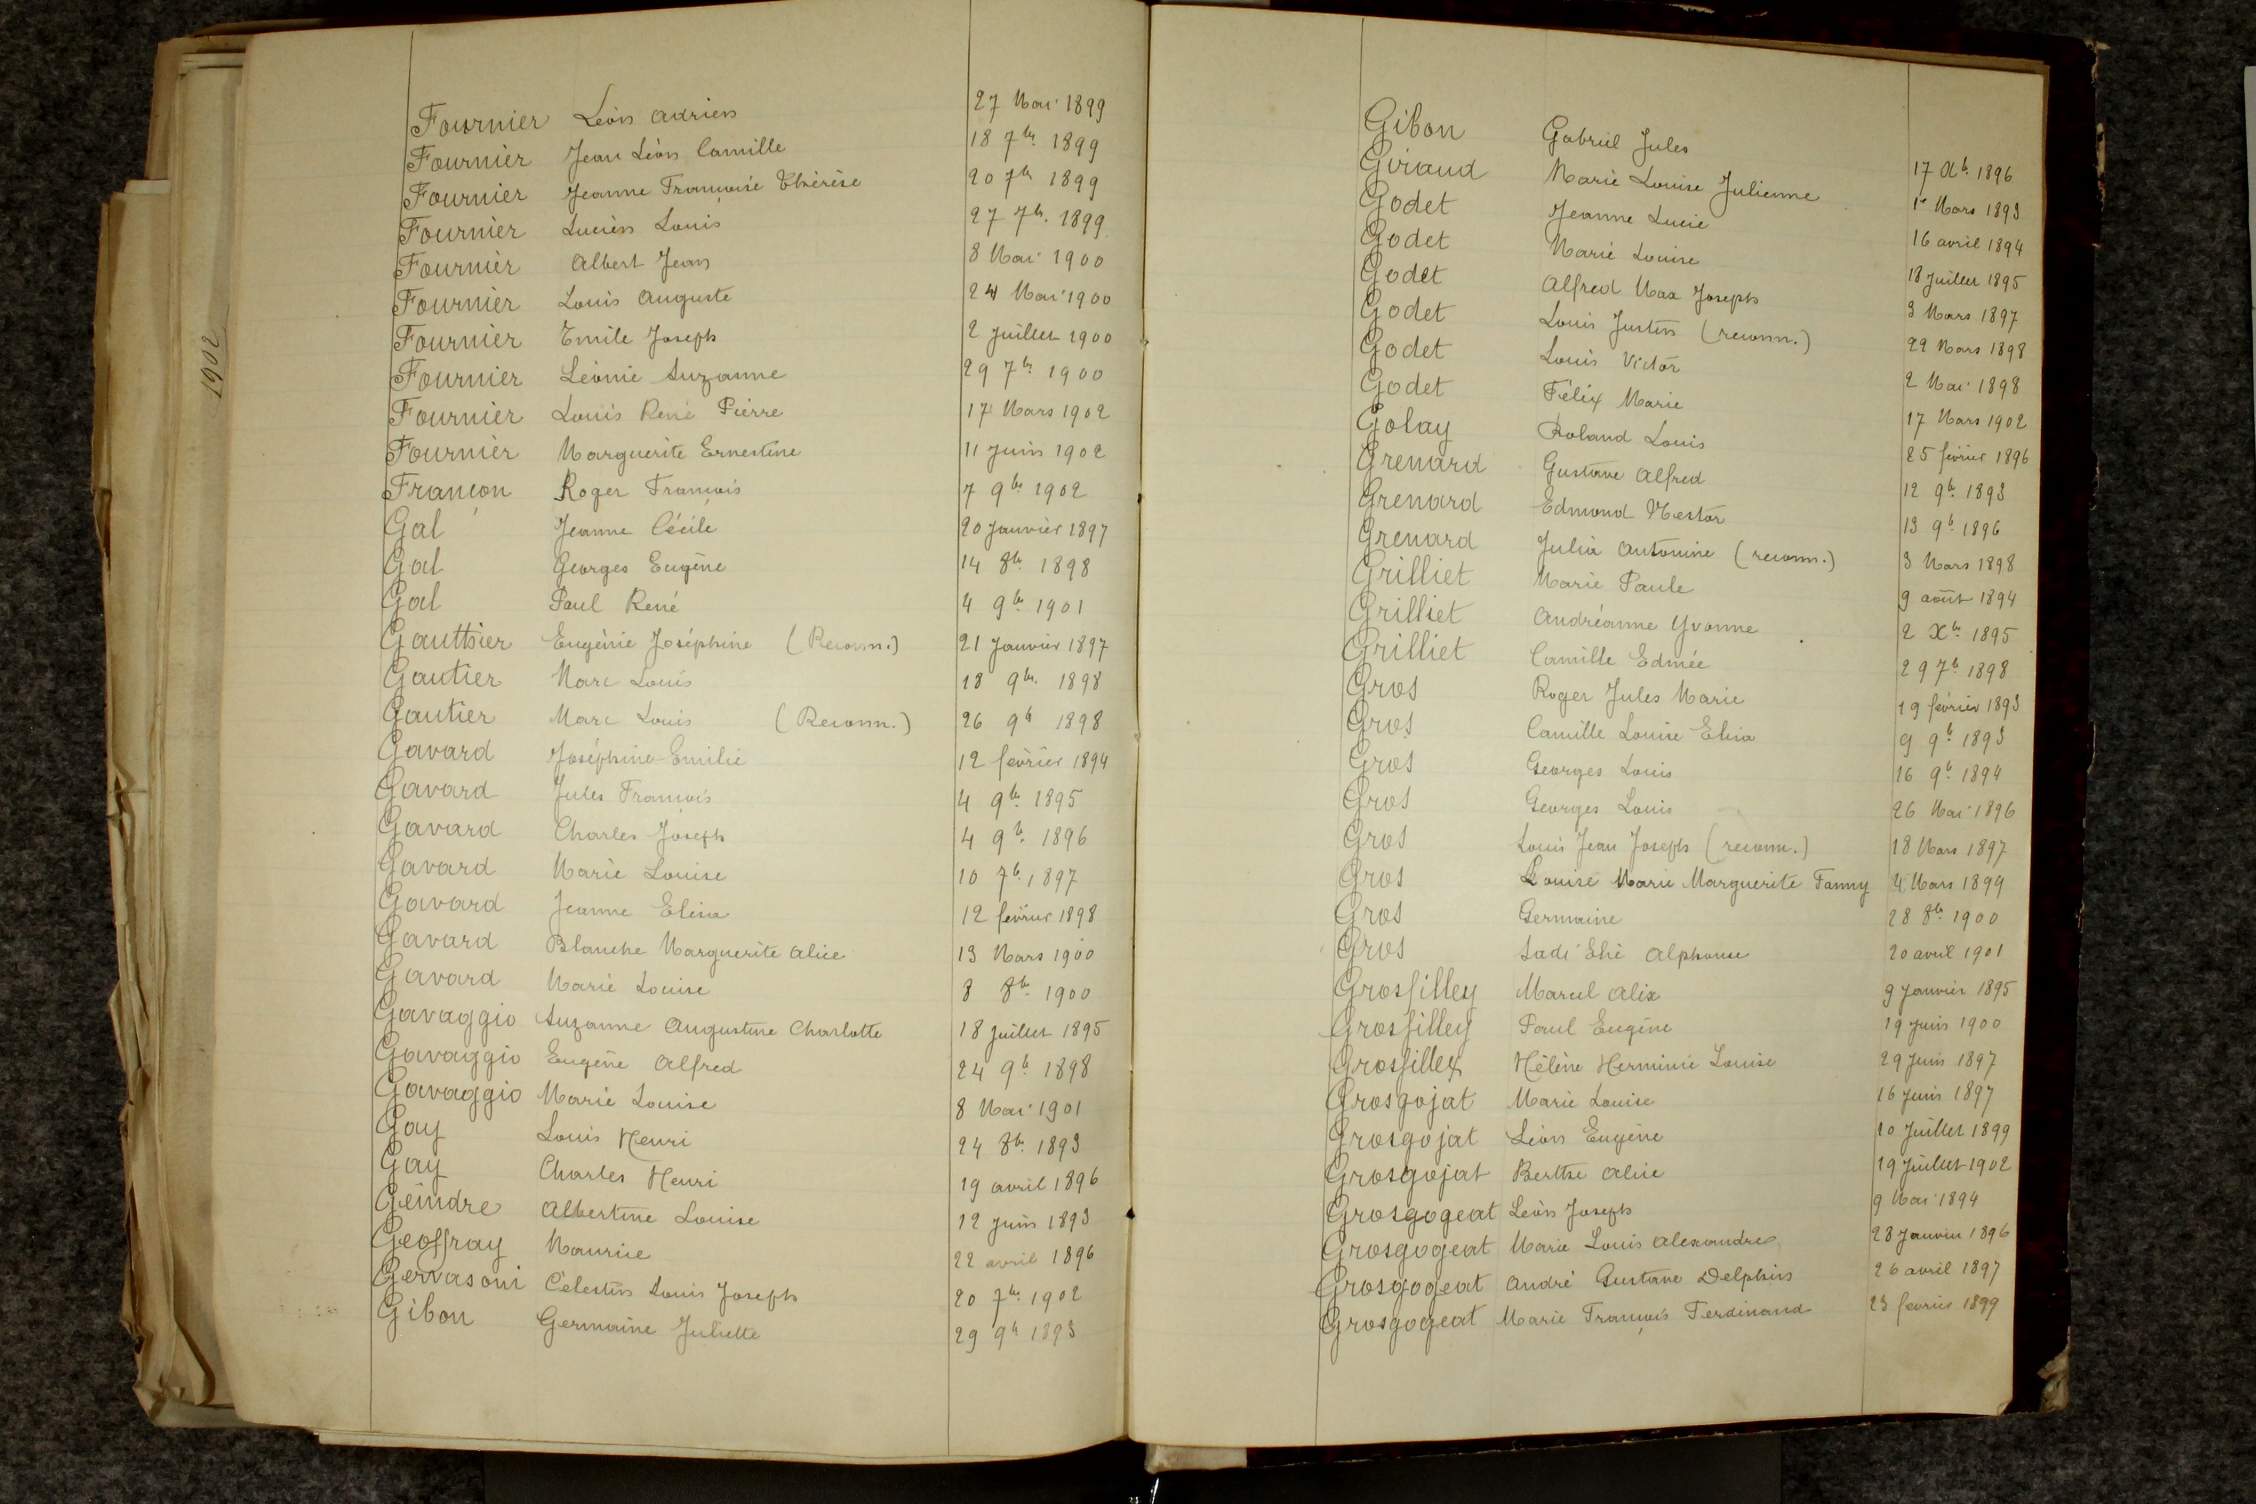 1902
Fournier Léon Adrien 27 Mai 1899
Fournier Jean Léon Camille 18 7bre 1899
Fournier Jeanne Françoise Thérèse 20 7bre 1899
Fournier Lucien Louis 27 7b. 1899
Fournier Albert Jean 8 Mai 1900
Fournier Louis Auguste 24 Mai 1900
Fournier Emile Joseph 2 Juillet 1900
Fournier Léonie Suzanne 29 7bre 1900
Fournier Louis René Pierre 17 Mars 1902
Fournier Marguerite Ernestine 11 Juin 1902
Françon Roger François 7 9bre 1902
Gal Jeanne Cécile 20 Janvier 1897
Gal Georges Eugène 14 8bre 1898
Gal Paul René 4 9bre 1901
Gauthier Eugénie Joséphine (Reconn.) 21 Janvier 1897
Gautier Marc Louis 18 9bre 1898
Gautier Marc Louis (Reconn.) 26 9b 1898
Gavard Joséphine-Emilie 12 février 1894
Gavard Jules François 4 9bre 1895
Gavard Charles Joseph 4 9b. 1896
Gavard Marie Louise 10 7b. 1897
Gavard Jeanne Elisa 12 février 1898
Gavard Blanche Marguerite Alice 13 Mars 1900
Gavard Marie Louise 8 8bre 1900
Gavaggio Suzanne Augustine Charlotte 18 Juillet 1895
Gavaggio Eugène Alfred 24 9b 1898
Gavaggio Marie Louise 8 Mai 1901
Gay Louis Henri 24 8bre 1893
Gay Charles Henri 19 avril 1896
Geindre Albertine Louise 12 Juin 1893
Geoffray Maurice 22 avril 1896
Gervasoni Célestin Louis Joseph 20 7bre 1902
Gibon Germaine Juliette 29 9b 1893
Gibon Gabriel Jules 17 Xb. 1896
Giraud Marie Louise Julienne 1er Mars 1893
Godet Jeanne Lucie 16 avril 1894
Godet Marie Louise 18 Juillet 1895
Godet Alfred Max Joseph 3 Mars 1897
Godet Louis Justin (reconn.) 22 Mars 1898
Godet Louis Victor 2 Mai 1898
Godet Félix Marie 17 Mars 1902
Golay Roland Louis 25 février 1896
Grenard Gustave Alfred 12 9b. 1893
Grenard Edmond Nestor 13 9b. 1896
Grenard Julia Antonine (reconn.) 3 Mars 1898
Grilliet Marie Paule 9 août 1894
Grilliet Andréanne Yvonne 2 Xbre 1895
Grilliet Camille Edmée 29 7b 1898
Gros Roger Jules Marie 19 février 1893
Gros Camille Louise Elisa 9 9b. 1893
Gros Georges Louis 16 9b. 1894
Gros Georges Louis 26 Mai 1896
Gros Louis Jean Joseph (reconn.) 18 Mars 1897
Gros Louise Marie Marguerite Fanny 4 Mars 1899
Gros Germaine 28 8bre 1900
Gros Sadi Elie Alphonse 20 avril 1901
Grosfilley Marcel Alix 9 Janvier 1895
Grosfilley Paul Eugène 19 Juin 1900
Grosfillex Hélène Herminie Louise 29 Juin 1897
Grosgojat Marie Louise 16 Juin 1897
Grosgojat Léon Eugène 10 Juillet 1899
Grosgojat Berthe Alice 19 Juillet 1902
Grosgogeat Léon Joseph 9 Mai 1894
Grosgogeat Marie Louis Alexandre 28 Janvier 1896
Grosgogeat André Gustave Delphin 26 avril 1897
Grosgogeat Marie François Ferdinand 23 février 1899